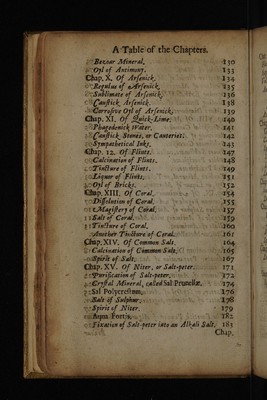 A Table of the Chapters.
Bezoar Mineral, 130
Oyl of Antimony. 133
Chap. X. Of Arsenick. 134
Regulus of Arsenick, 135
Sublimate of Arsenick, 136
Caustick Arsenick. 138
Corrosive Oyl of Arsenick, 139
Chap. XI. Of Quick-Lime. 140
Phagedenick Water, 141
Caustick Stones, or Cauteries. 142
Sympathetical Inks, 143
Chap. 12. Of Flints. 147
Calcination of Flints, 148
Tincture of Flints. 149
Liquor of Flints, 151
Oyl of Bricks. 152
Chap. XIII. Of Coral. 154
Dissolution of Coral, 155
Magistery of Coral, 157
Salt of Coral. 159
Tincture of Coral, 160
Another Tincture of Coral. 161
Chap. XIV. Of Common Salt. 164
Calcination of Common Salt, 165
Spirit of Salt. 167
Chap. XV. Of Niter, or Salt-peter. 171
Purification of Salt-peter, 172
Crystal Mineral, called Sal Prunellæ. 174
Sal Polycrestum, 176
Salt of Sulphur, 178
Spirit of Niter. 179
Aqua Fortis. 182
Fixation of Salt-peter into an Alkali Salt, 183
Chap.